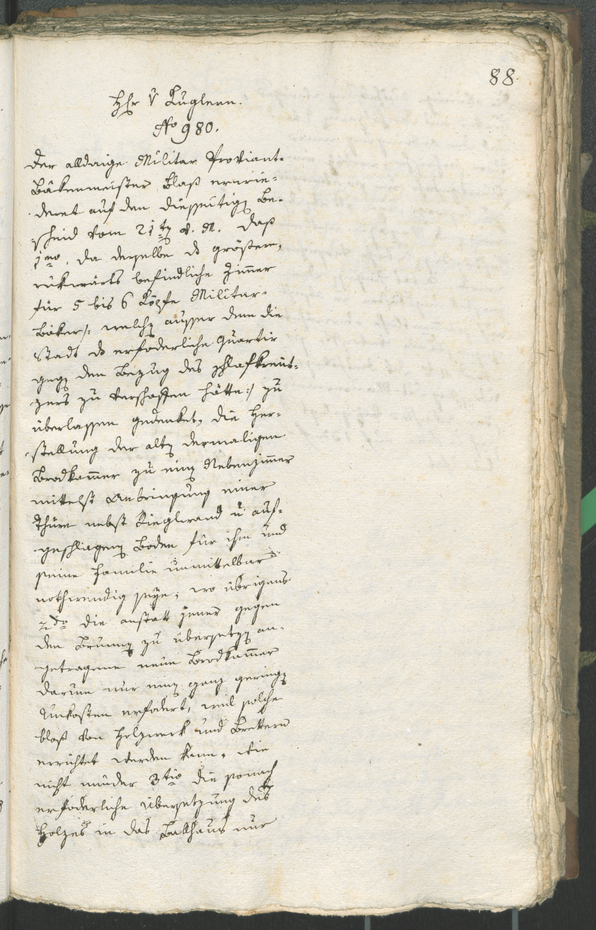 88.
Hr v Luglern.
No 980.
Der alldaige Militar Proviant-
Bäkenmeister Blaß
deret auf den diesseitigen Be-
scheid vom 21ten v. M. daß
1mo, da derselbe das größere,
rükwärts befindliche Zimmer
für 5 bis 6 Köpfe Militar-
Böker/: welche ausser dem die
Stadt das erforderliche Quartir
gegen den Bezug des Schlafkreu-
zers zu verschaffen hätte:/ zu
überlassen gedenket, die Her-
stellung der alten dermaligen
Brodkam̄er zu einem Nebenzim̄er
mittelst Anbringung einer
Thüre nebst Rieglwand u auf-
geschlagenen Boden für ihn und
seine Familie unmittelbar
nothwendig seye; wo übrigens
2do die anstatt jener gegen
den Brunnen zu übersetzen an-
getragene neue Brodkam̄er
darum nur einen ganz geringen
Unkosten erfodert, weil solche
bloß von Holzwerk und Brettern
errichtet werden kann, wie
nicht minder 3tio die sonach
erfoderliche Übersetzung des
Holzes in das Ballhaus nur